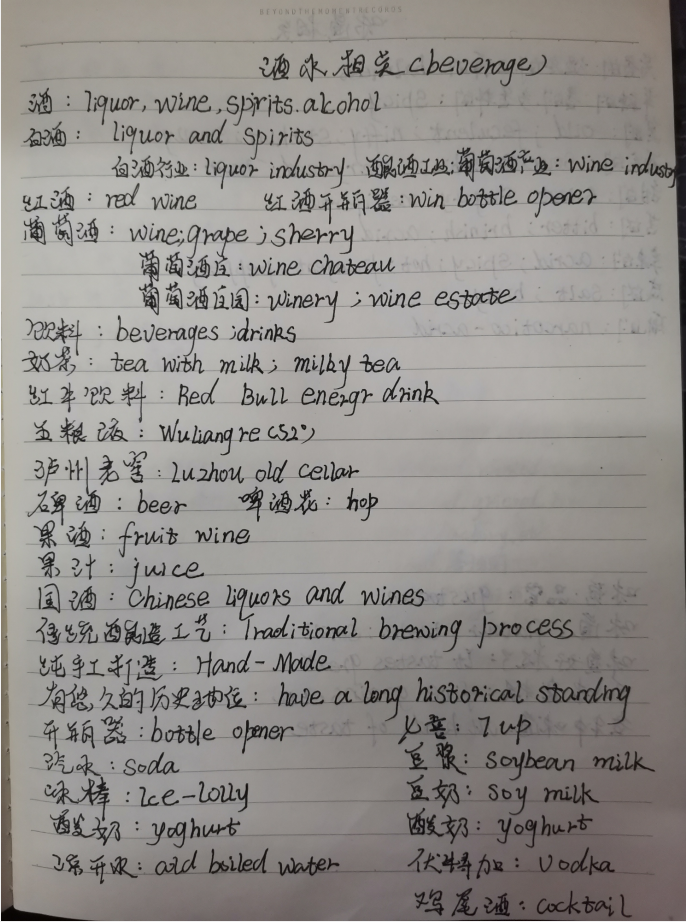 BEYONDTHEMOMENTRECORDS
酒水相关(beverage)
酒：liquor, wine, spirits. alcohol
白酒：liquor and spirits
白酒行业：liquor industry 酿酒工业;葡萄酒产业：wine industry
红酒：red wine 红酒开瓶器：win bottle opener
葡萄酒：wine;grape;sherry
葡萄酒庄：wine chateau
葡萄酒庄园：winery;wine estate
饮料：beverages;drinks
奶茶：tea with milk; milky tea
红牛饮料：Red Bull energr drink
五粮液：Wuliangre(52°)
泸州老窖：Luzhou old cellar
碑酒：beer 啤酒花：hop
果酒：fruit wine
果汁：juice
国酒：Chinese liquors and wines
传统酿造工艺：Traditional brewing process
纯手工打造：Hand-Made
有悠久的历史地位：have a long historical standing
开瓶器：bottle opener 七喜：7 up
汽水：soda 豆浆：soybean milk
冰棒：Ice-Lolly 豆奶：soy milk
酸奶：yoghurt 酸奶：yoghurt
凉开水：boiled water 伏特加：Vodka
鸡尾酒：cocktail